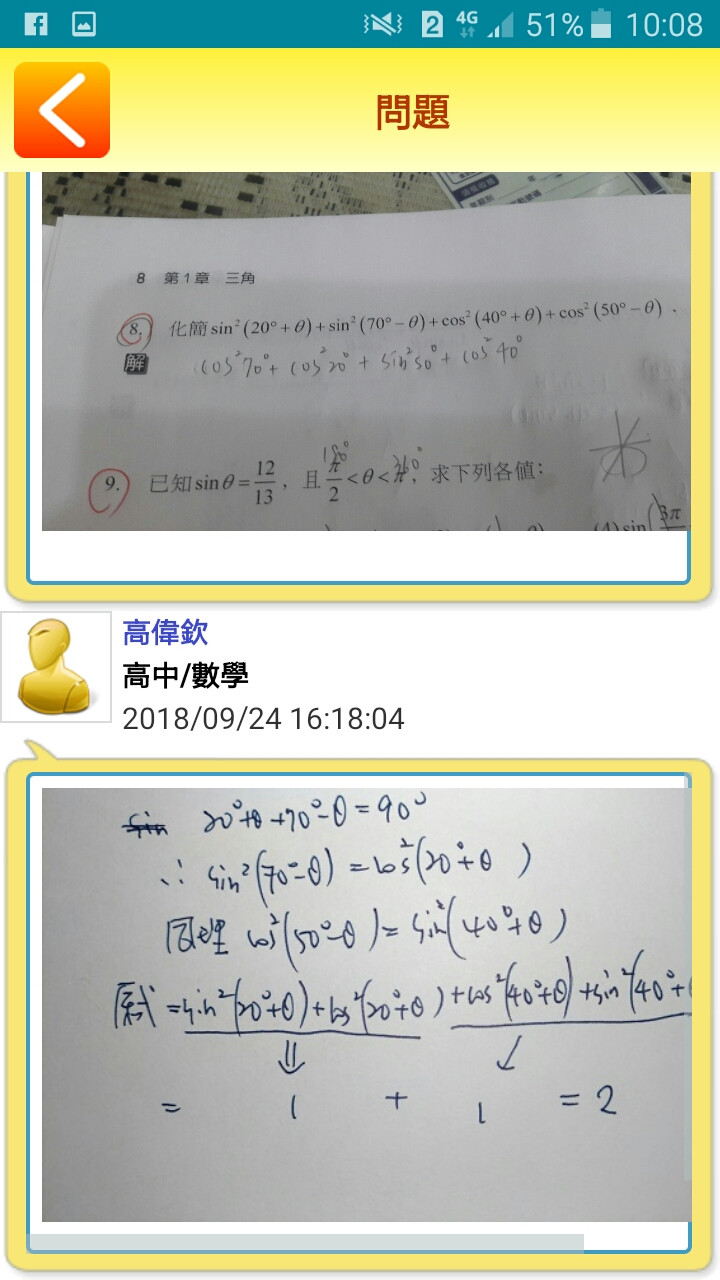 2 4G 51% 10:08
問題
8 第1章 三角
8. 化簡 sin²(20°+θ)+sin²(70°−θ)+cos²(40°+θ)+cos²(50°−θ).
解 cos²70°+ cos²20° + sin²50° + cos²40°
180° 360°
9. 已知 sinθ=12/13, 且 π/2<θ<π, 求下列各值:
(4) sin(3π
高偉欽
高中/數學
2018/09/24 16:18:04
sin 20°+θ+70°−θ=90°
∴ sin²(70°−θ) = cos²(20°+θ)
同理 cos²(50°−θ)= sin²(40°+θ)
原式 = sin²(20°+θ)+cos²(20°+θ)+cos²(40°+θ)+sin²(40°+θ
= 1 + 1 = 2